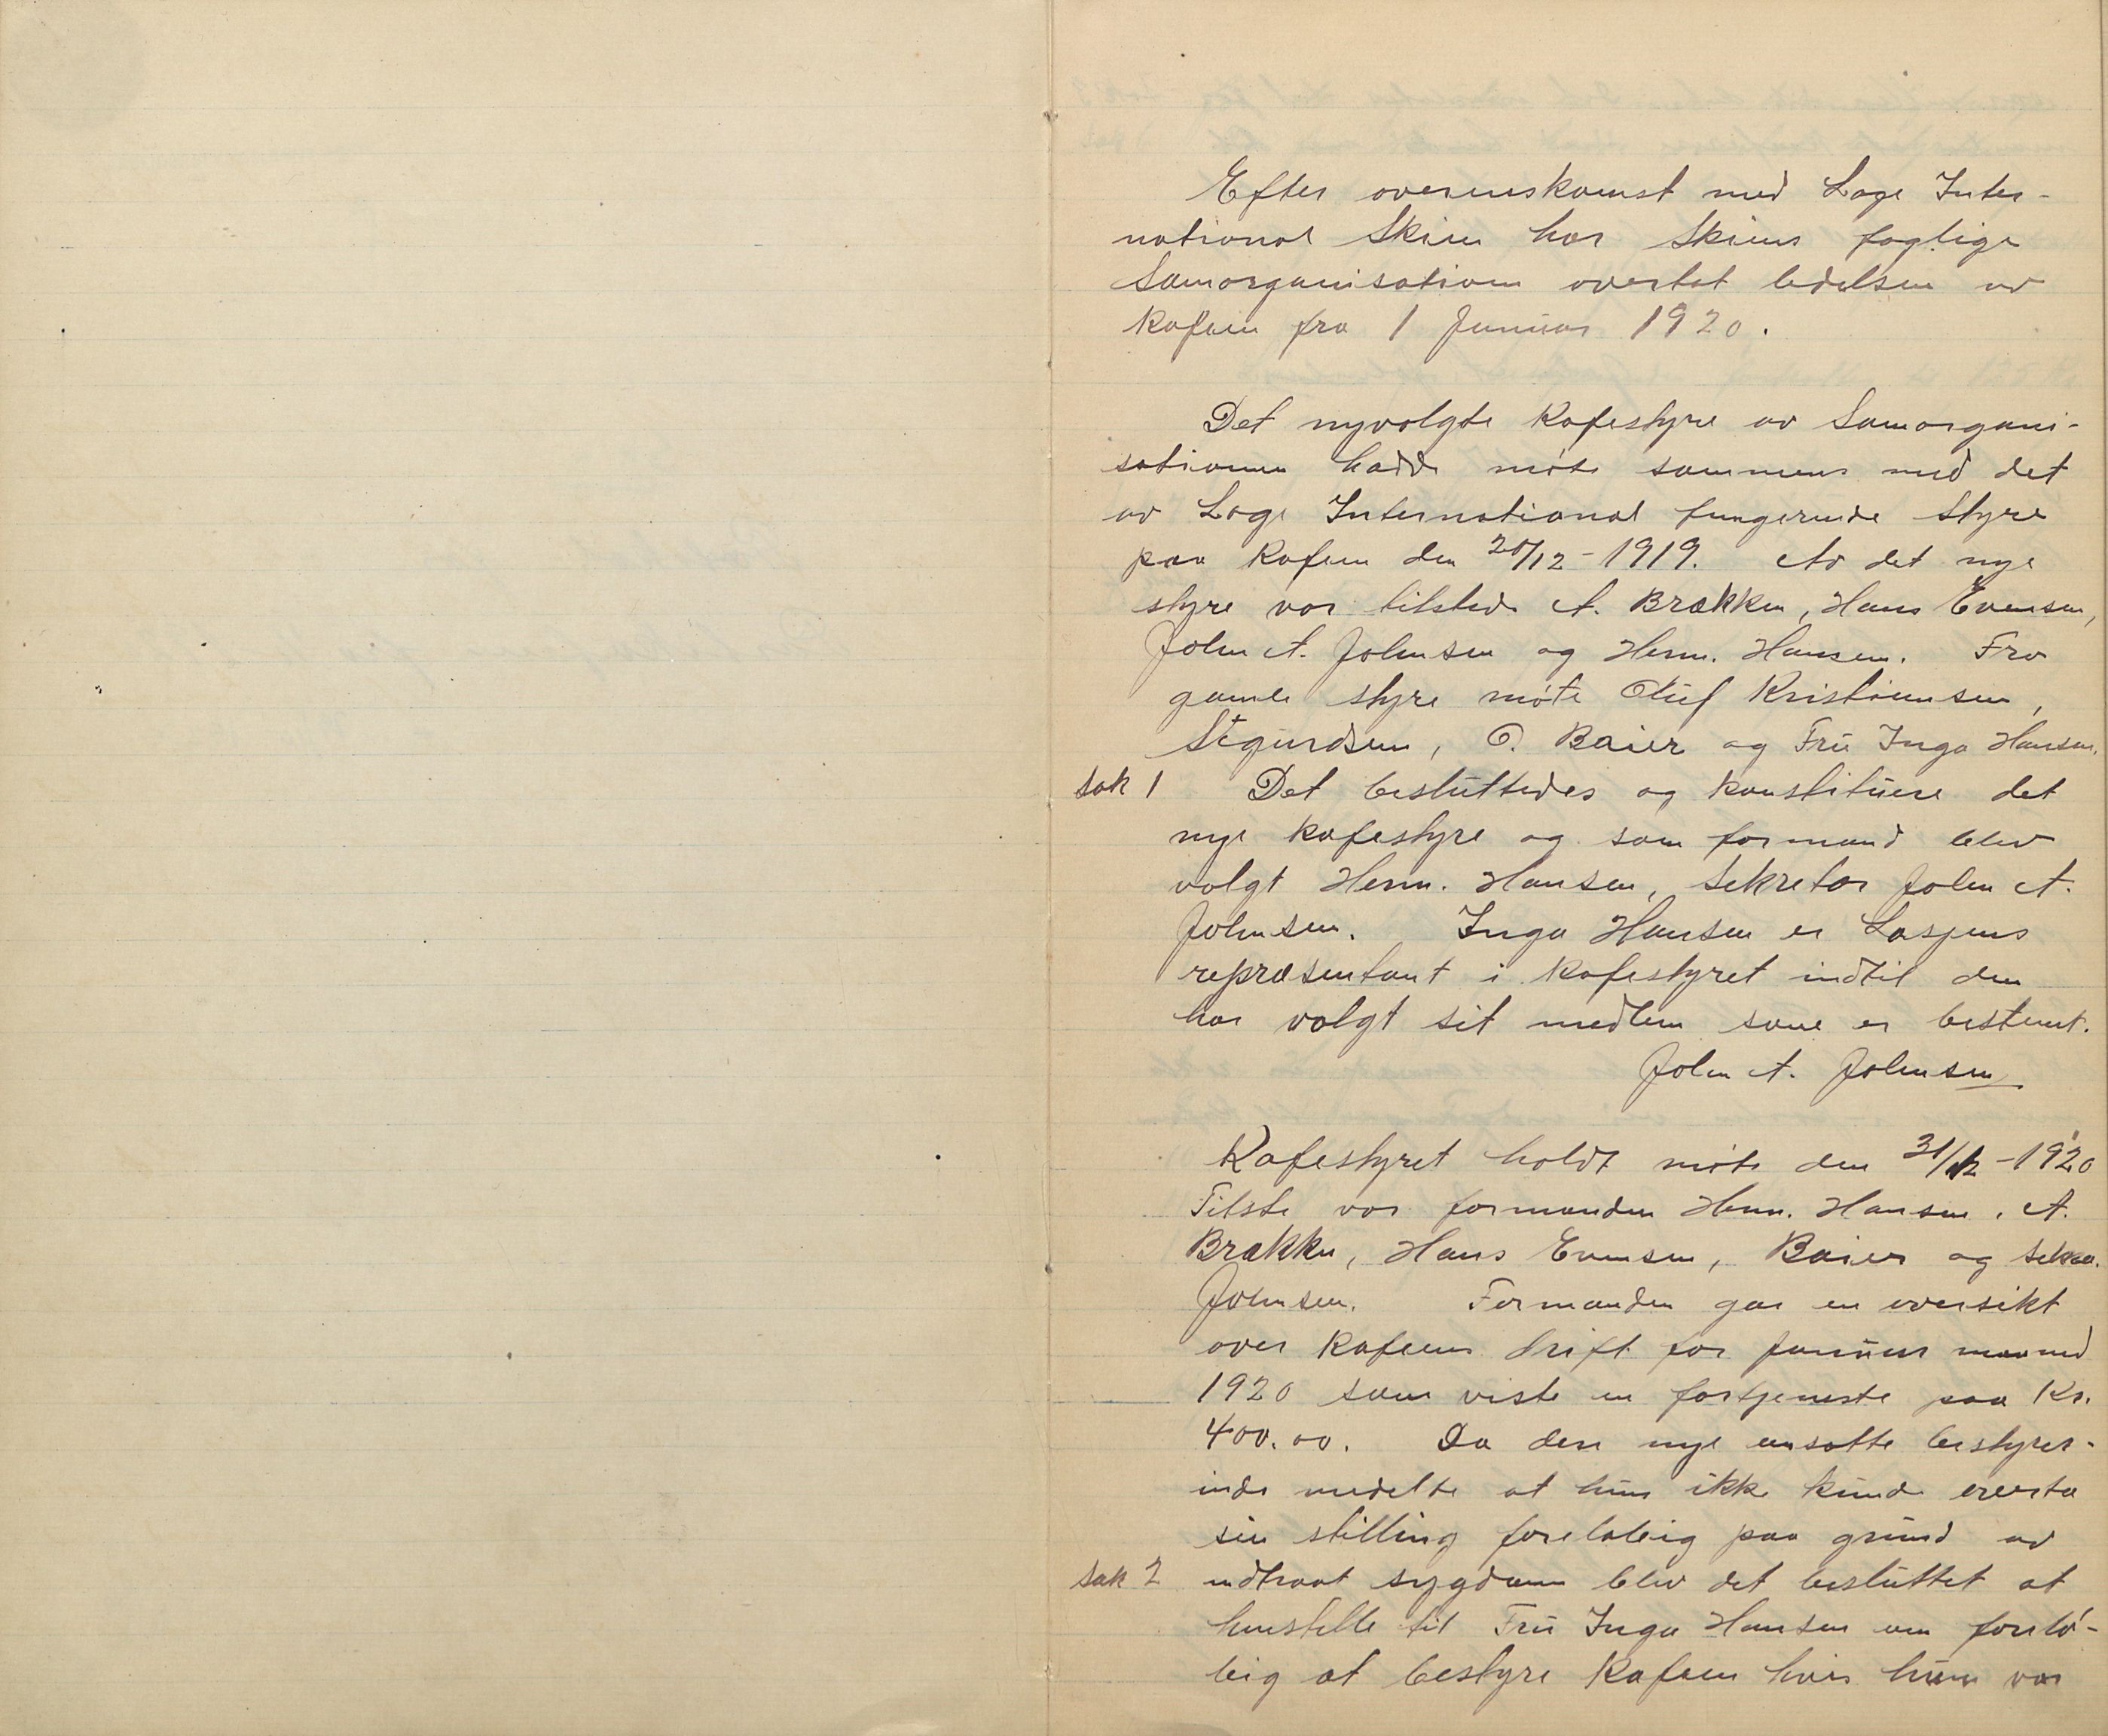 Efter overenskomst med Loge Inter-
national Skien har Skiens faglige
Samorganisation overtat ledelsen av
Kafeen fra 1 Januar 1920.
Det nyvalgte Kafestyre av Samorgani-
sationen hadde møte sammens med det
av Loge International fungerende Styre
paa Kafeen den 20/12-1919. Av det nye
styre var tilstede A. Brækken, Hans Evensen,
John A. Johnsen og Herm. Hansen. Fra
gamle styre møte Oluf Kristiansen,
Sigurdsen, O. Baier og Fru Inga Hansen.
Sak 1 Det besluttedes og konstituere det
nye kafestyre og som formand blev
valgt Herm. Hansen, Sekretær John A.
Johnsen. Inga Hansen er Logens
repræsentant i kafestyret indtil den
har valgt sit medlem som er bestemt.
John A. Johnsen
Kafestyret holdt møte den 31/12-1920
Tilste var formanden Herm. Hansen, A.
Brækken, Hans Evensen, Baier og
Johnsen. Formanden gav en oversikt
over Kafeens drift for januar maaned
1920 som viste en fortjeneste paa Kr.
400.00. Da den nye ansatte bestyrer-
inde medelte at hun ikke kunde overta
sin stilling foreløbig paa grund av
Sak 2 indtraat sygdom blev det besluttet at
henstille til Fru Inga Hansen om forelø-
big at bestyre Kafeen hvis hun var